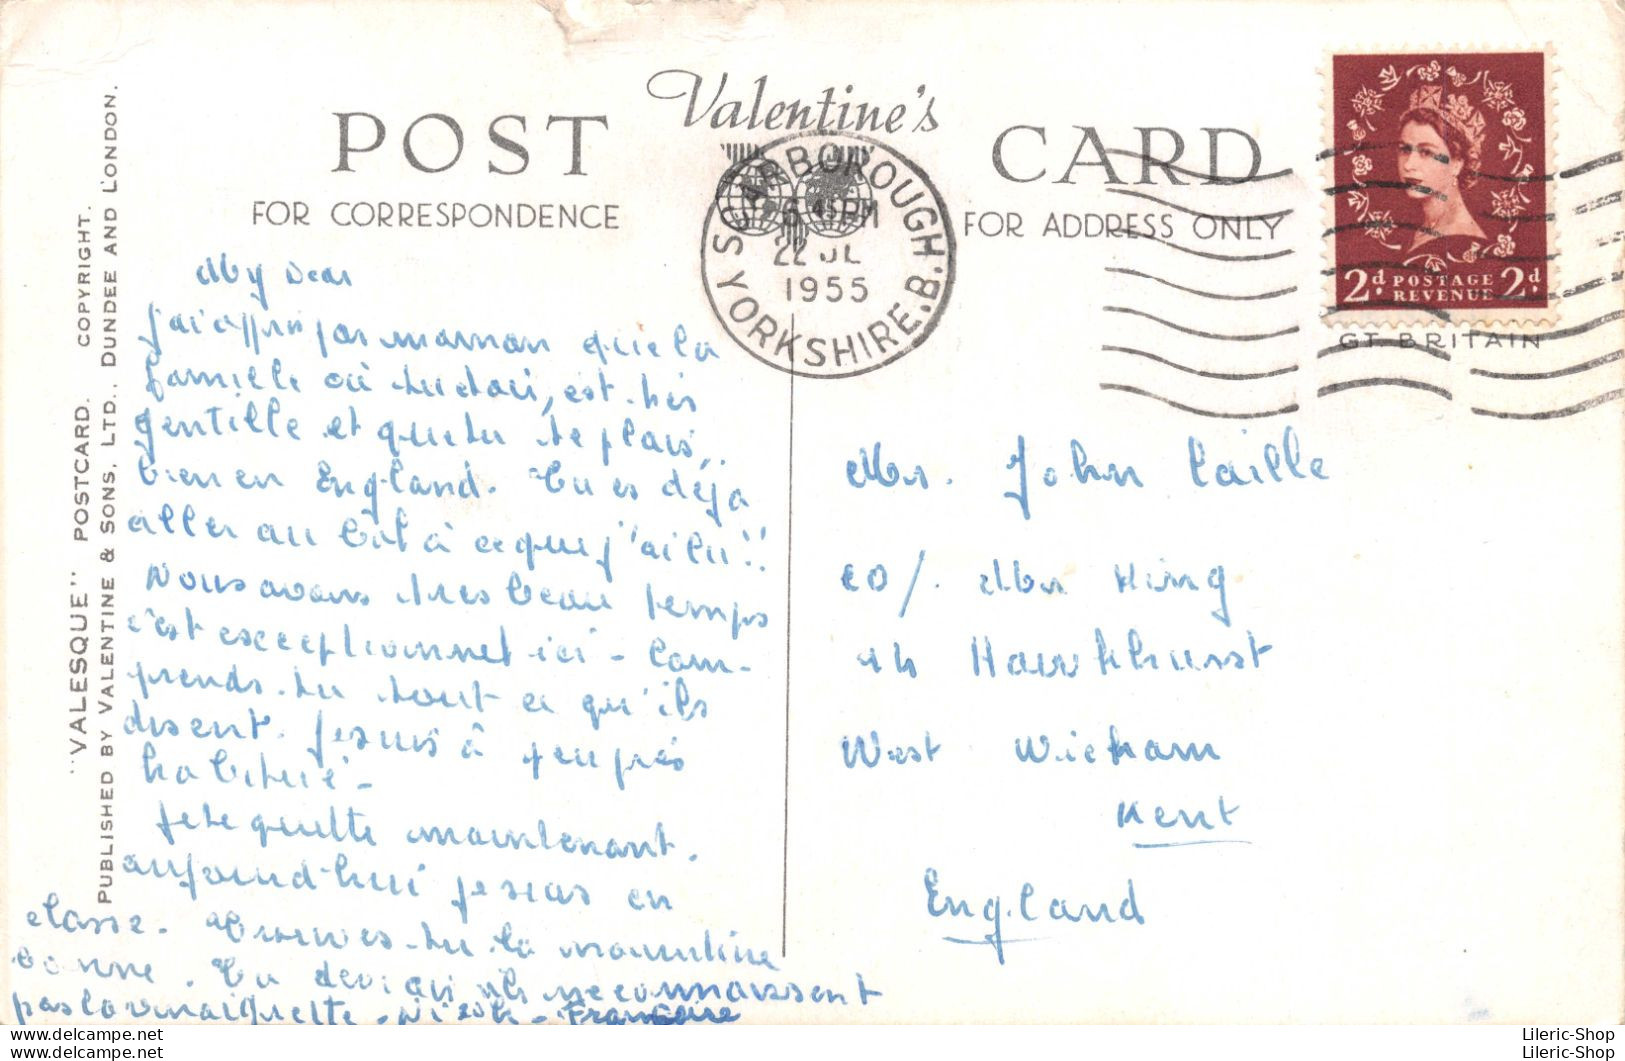 POST
Valentine's
CARD
FOR CORRESPONDENCE
FOR ADDRESS ONLY
"VALESQUE" POSTCARD. COPYRIGHT.
PUBLISHED BY VALENTINE & SONS, LTD., DUNDEE AND LONDON.
SCARBOROUGH
6 45 PM
22 JL
1955
YORKSHIRE.B.
2d. POSTAGE REVENUE 2d.
GT. BRITAIN
My Dear
j'ai appris par maman que la
famille où tu es, est très
gentille et que tu te plais
bien en England. Tu es déjà
aller au à ce que j'ai lu!!
Nous avons très beau temps
c'est exceptionnel ici - Com-
prends-tu tout ce qu'ils
disent. Je suis à peu près
habitué -
Je te quitte maintenant.
aujourd'hui je suis en
classe. Trouves-tu la nourriture
bonne. Tu ils ne connaissent
pas la vinaigrette - - Françoise
Mr. John Caille
co/. Mr King
Hawkhurst
West Wickham
Kent
England
Lileric-Shop
Lileric-Shop
Lileric-Shop
Lileric-Shop